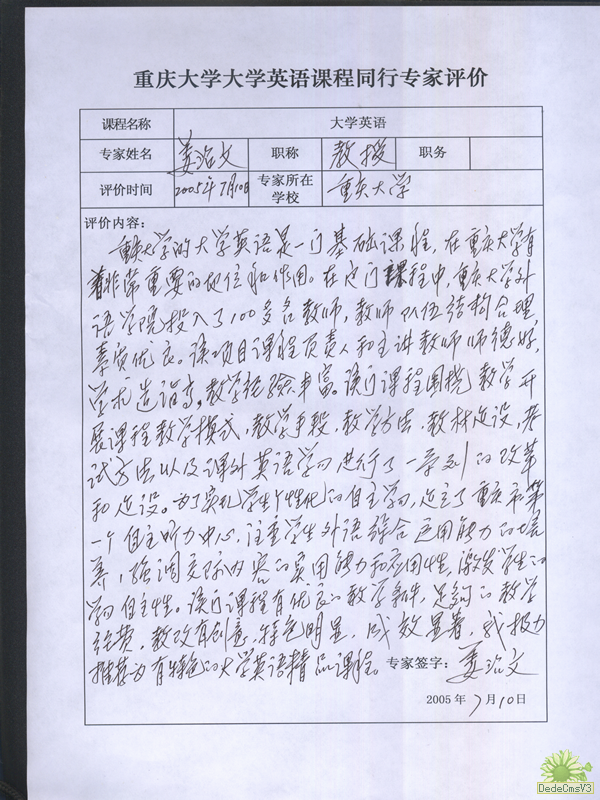 重庆大学大学英语课程同行专家评价
课程名称 大学英语
专家姓名 姜治文 职称 教授 职务
评价时间 2005年7月10日 专家所在学校 重庆大学
评价内容：
重庆大学的大学英语是一门基础课程，在重庆大学有
着非常重要的地位和作用。在这门课程中，重庆大学外
语学院投入了100多名教师，教师队伍结构合理
素质优良。该项目课程负责人和主讲教师师德好，
学术造诣高，教学经验丰富。该门课程围绕教学开
展课程教学模式，教学手段，教学方法，教材建设，考
试方法以及课外英语学习进行了一系列的改革
和建设。为了实现学生个性化的自主学习，建立了重庆市第
一个自主听力中心，注重学生外语综合运用能力的培
养，强调交际内容的实用能力和应用性，激发学生的
学习自主性。该门课程有优良的教学条件，足够的教学
经费，教改有创意，特色明显，成效显著，我极力
推荐为有特色的大学英语精品课程。 专家签字： 姜治文
2005年7月10日
DedeCmsV3